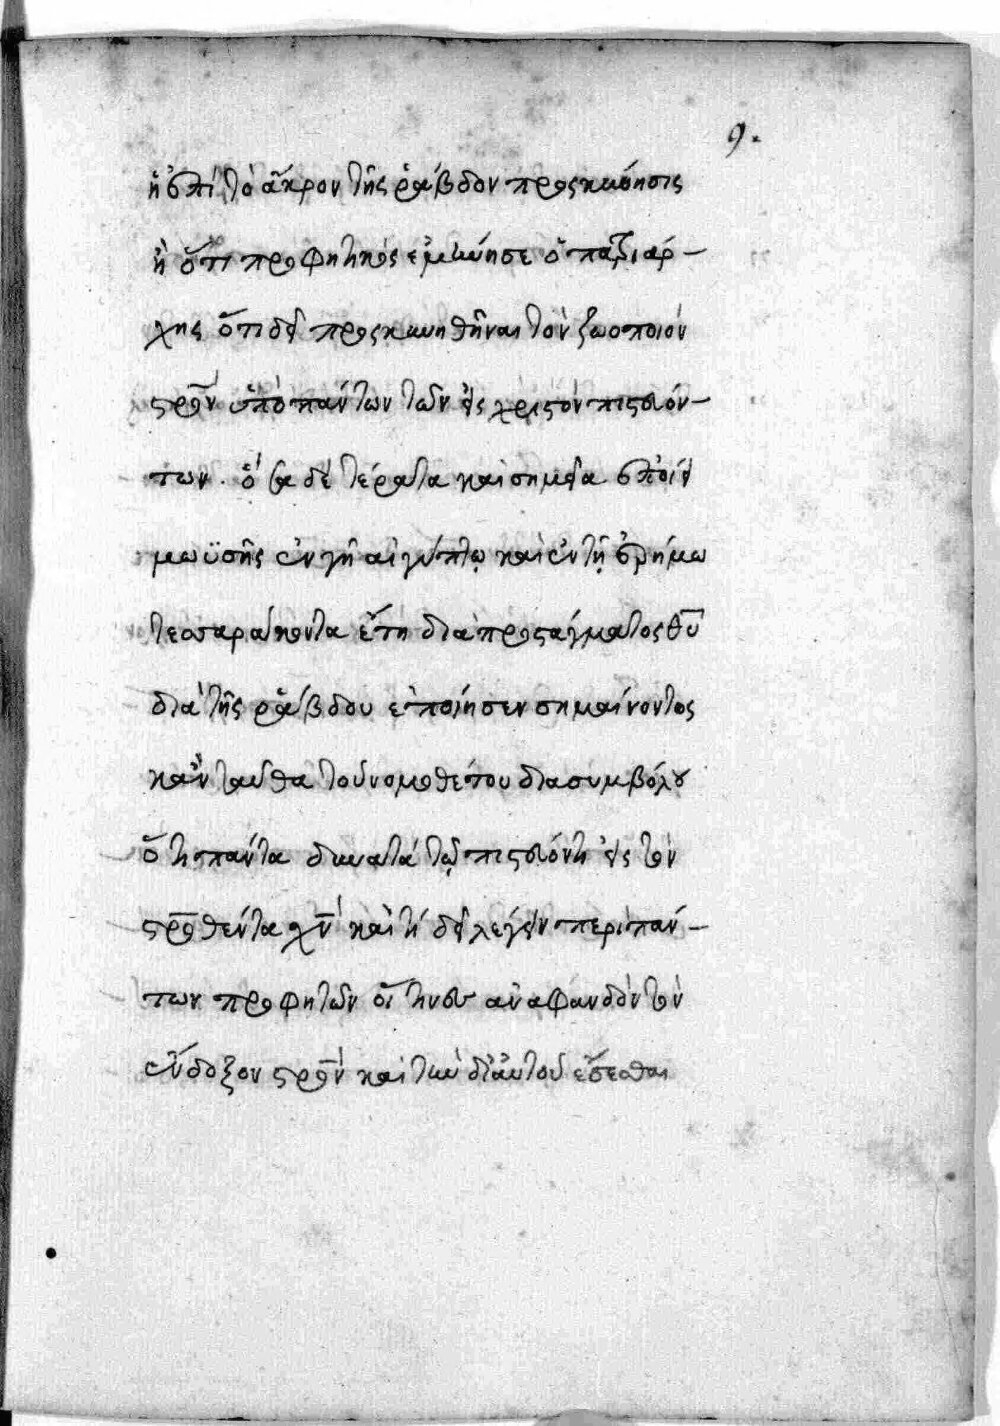 9.
ἡ ἐπὶ τὸ ἄκρον τῆς ῥάβδου προςκύνησις
ἢ ὅτι προφητικῶς ἐμήνυσε ὁ πατριάρ-
χης ὅτι δεῖ προςκυνηθῆναι τὸν ζωοποιὸν
ϛρον ὑπὸ πάντων τῶν εἰς χριϛὸν πιϛευόν-
των. ὅσα δὲ τέρατα καὶ σημεῖα ἐποίει
μωϋσῆς ἐν γῆ αἰγύπτῳ καὶ ἐν τῇ ἐρήμω
τεσσαράκοντα ἔτη διὰ προςτάγματος θυ
διὰ τῆς ράβδου ἐποίησεν σημαίνοντος
κἀνταῦθα τοῦ νομοθέτου διὰ συμβόλου
ὅτι πάντα δυνατὰ τῷ πιϛεύοντι εἰς τὸν
ϛρωθέντα χν καὶ τί δεῖ λέγειν περὶ πάν-
των προφητῶν οἵτινες ἀναφανδὸν τὸν
ἔνδοξον ϛρον καὶ τὴν δι αὐτοῦ ἔσεσθαι